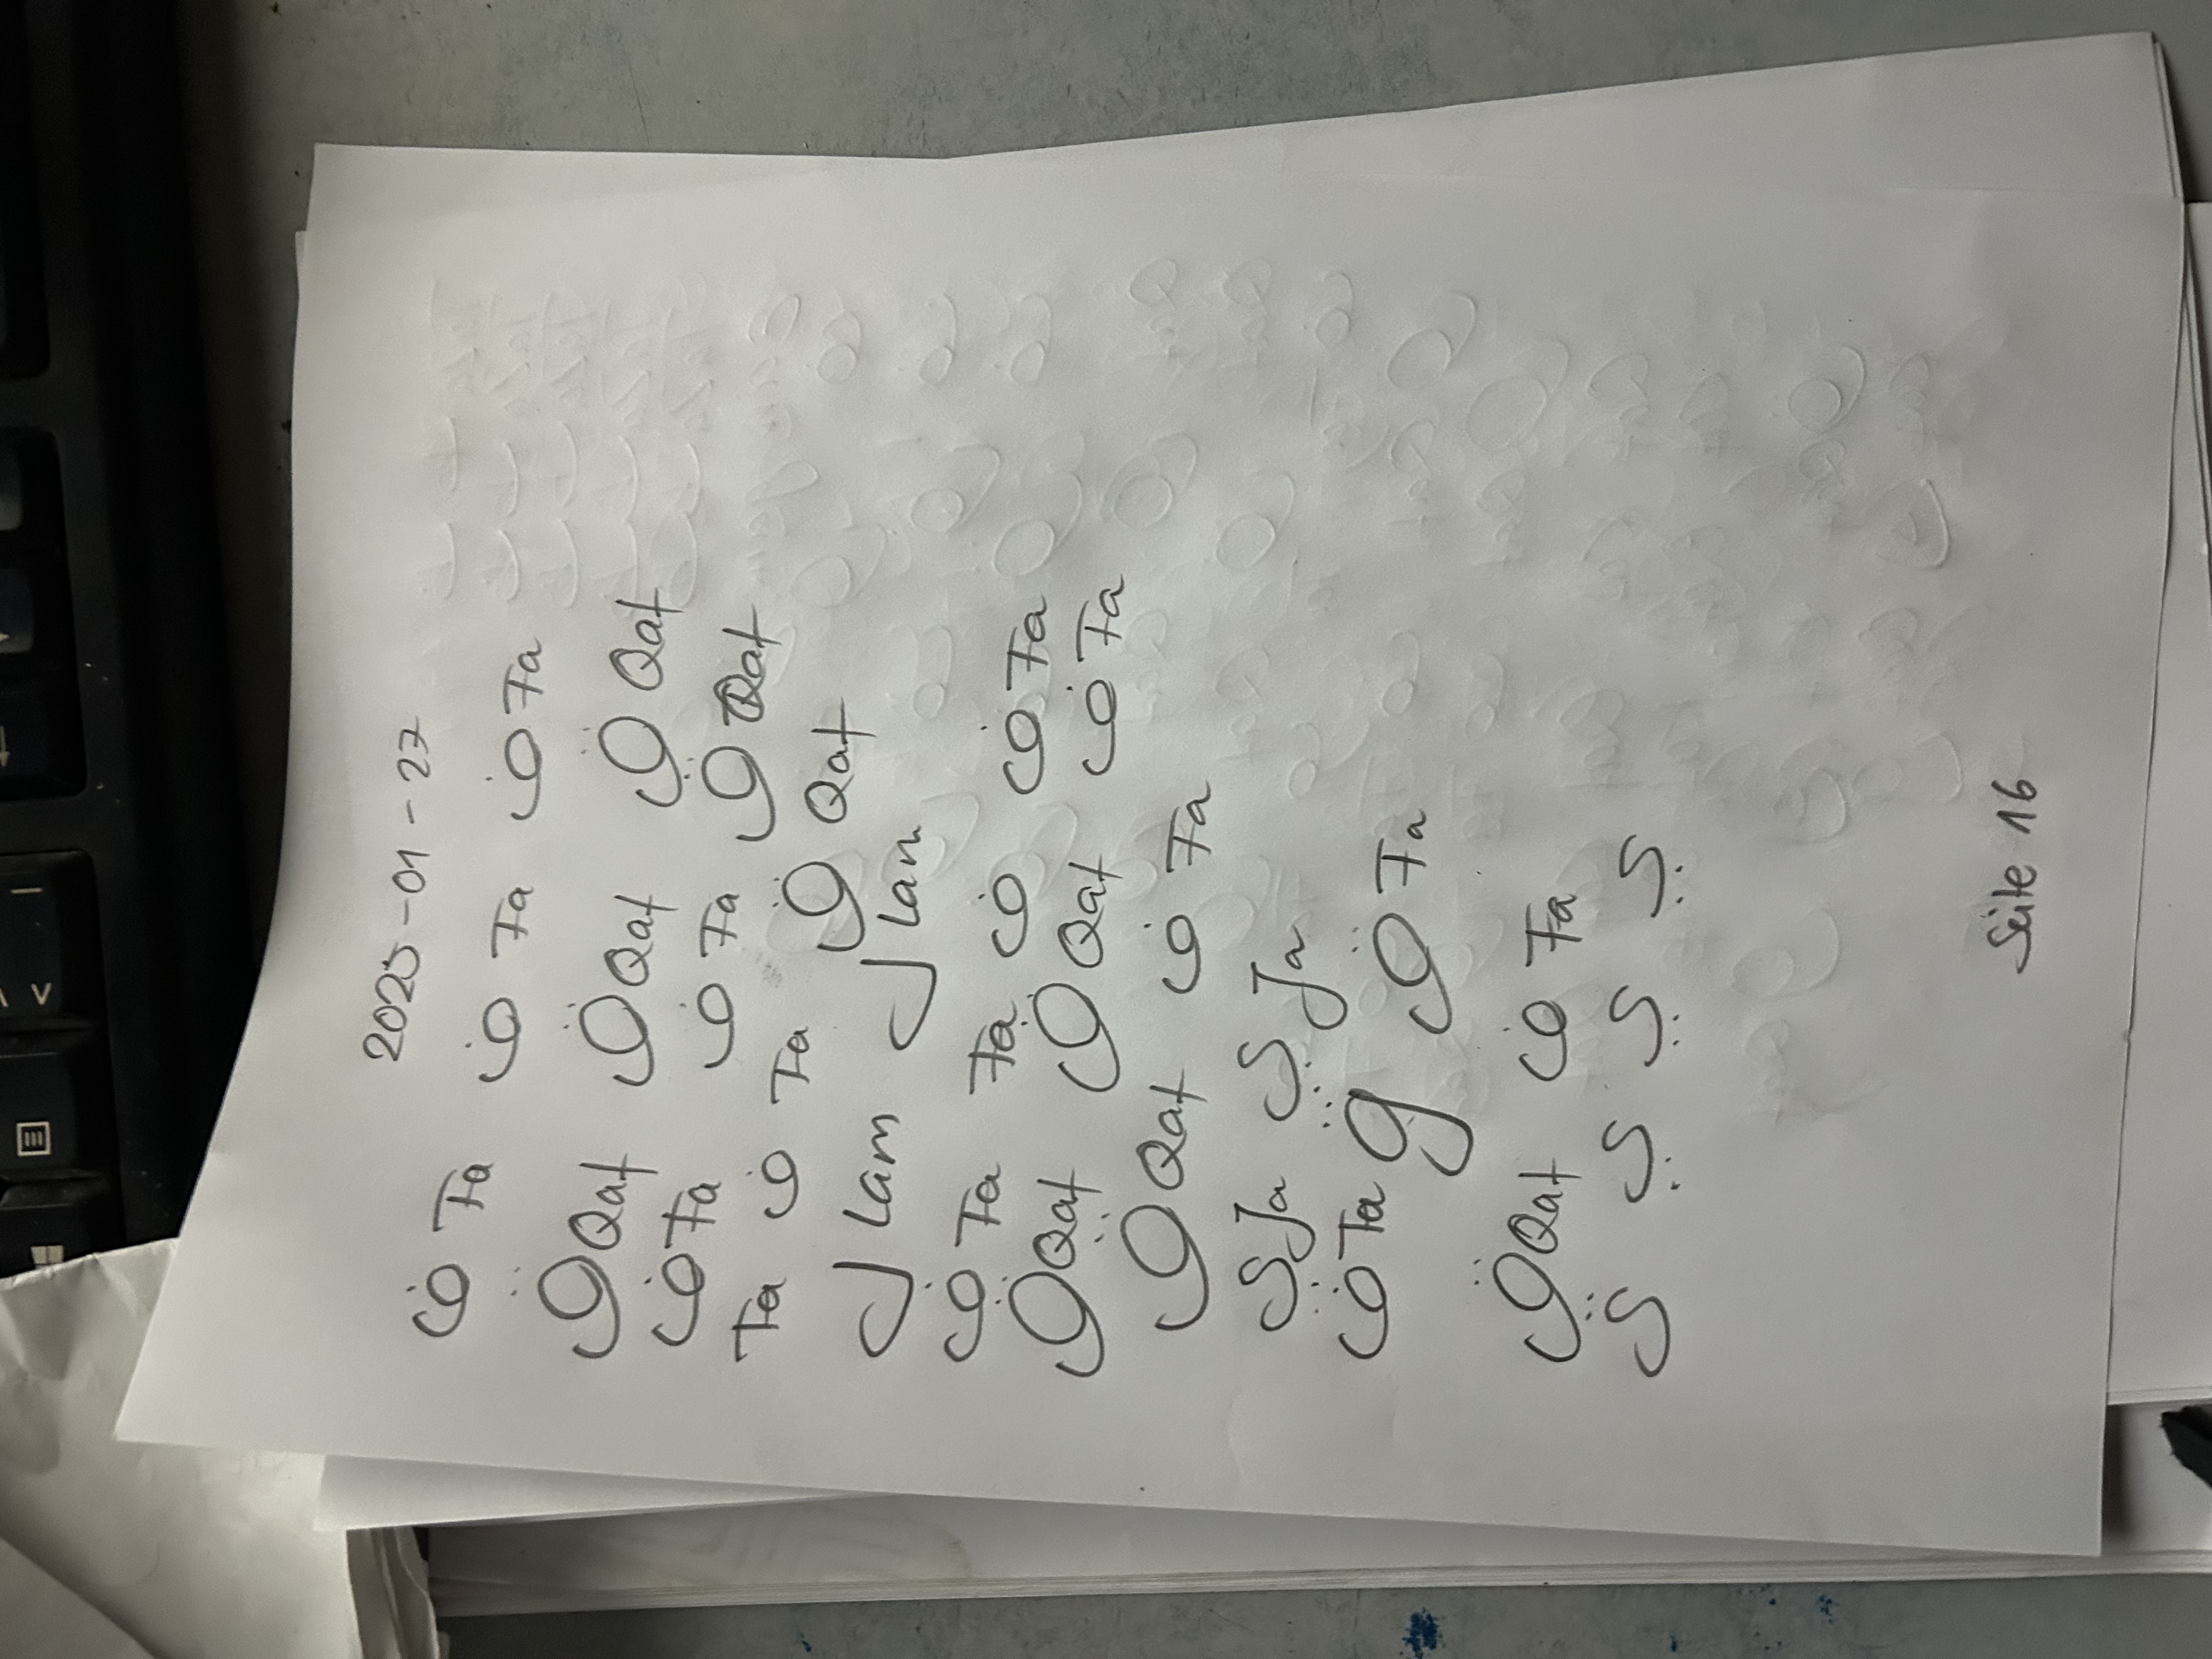 2025-01-27
ف Fa ف Fa ف Fa
ق Qaf ق Qaf ق Qaf
ف Fa ف Fa ق Qaf
Fa ف Fa ق Qaf
ل Lam ل Lam
ف Fa Fa ف ف Fa
ق Qaf ق Qaf ف Fa
ق Qaf ف Fa
ي Ja ي Ja
ف Fa ق ق Fa
ق Qaf ف Fa
ي ي ي ي
Seite 16